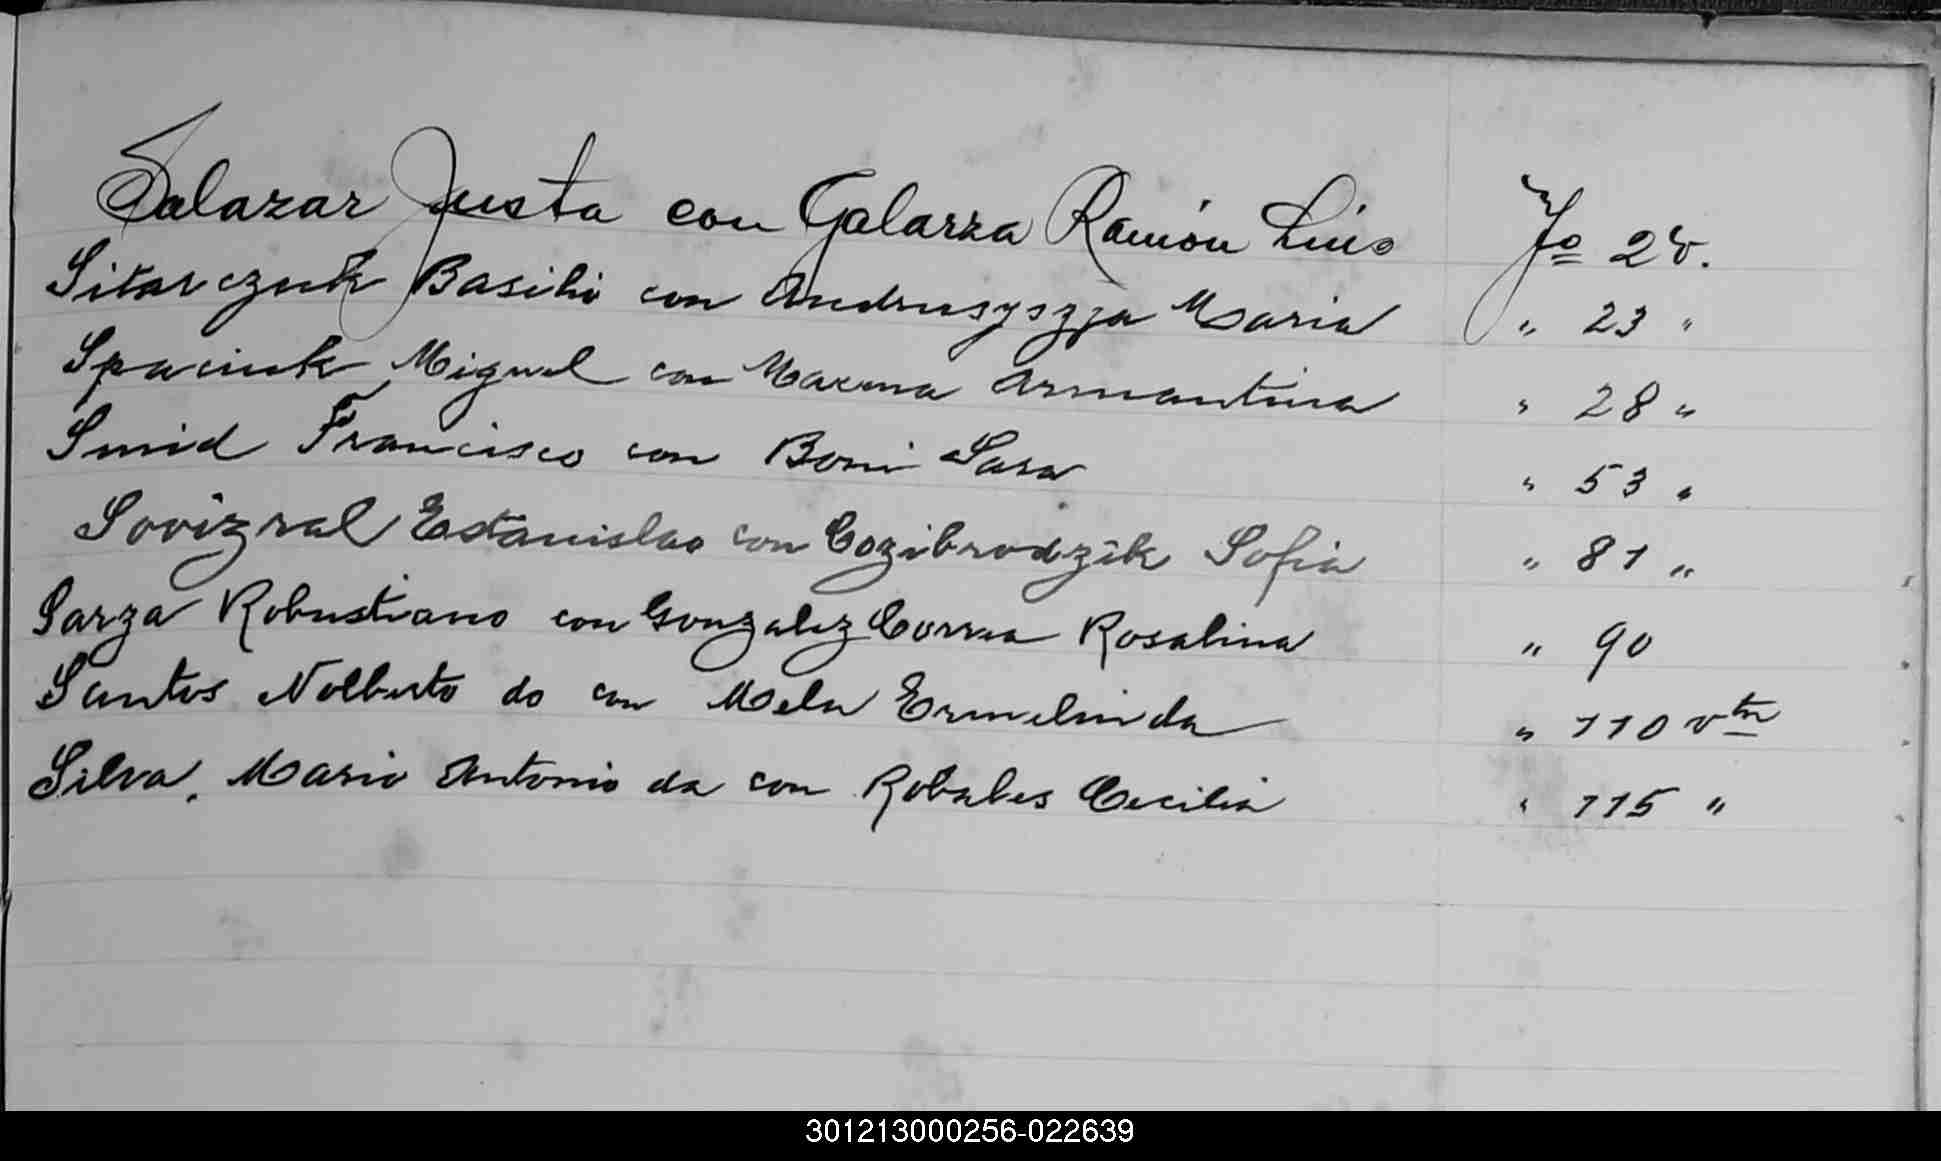 Salazar Justa con Galarza Ramón Luis Fo 2v.
Sitarczuk Basilio con Andrusyszja Maria " 23 "
Spaciuk Miguel con Armantina " 28 "
Smid Francisco con Boni Sara " 53 "
Sovizral Estanislao con Cozibrodzik Sofia " 81 "
Sarza Robustiano con Gonzalez Correa Rosalina " 90
Santos Nolberto do con Mela Ermelinda " 110 vta
Silva, Mario Antonio da con Robales Cecilia " 115 "
301213000256-022639